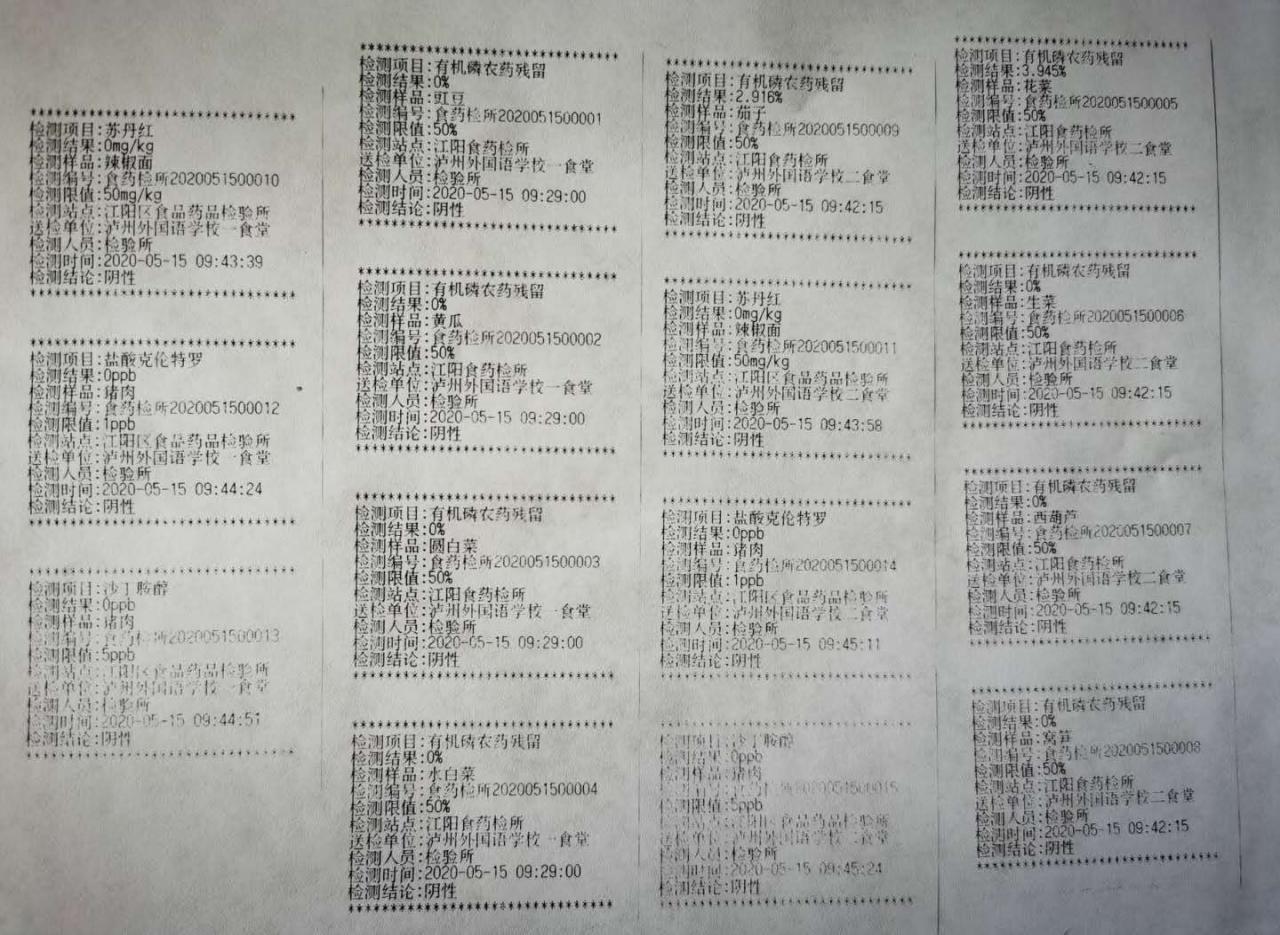 ******************************
检测项目:苏丹红
检测结果:0mg/kg
检测样品:辣椒面
检测编号:食药检所2020051500010
检测限值:50mg/kg
检测站点:江阳区食品药品检验所
送检单位:泸州外国语学校一食堂
检测人员:检验所
检测时间:2020-05-15 09:43:39
检测结论:阴性
******************************
******************************
检测项目:盐酸克伦特罗
检测结果:0ppb
检测样品:猪肉
检测编号:食药检所2020051500012
检测限值:1ppb
检测站点:江阳区食品药品检验所
送检单位:泸州外国语学校一食堂
检测人员:检验所
检测时间:2020-05-15 09:44:24
检测结论:阴性
******************************
******************************
检测项目:沙丁胺醇
检测结果:0ppb
检测样品:猪肉
检测编号:食药检所2020051500013
检测限值:5ppb
检测站点:江阳区食品药品检验所
送检单位:泸州外国语学校一食堂
检测人员:检验所
检测时间:2020-05-15 09:44:51
检测结论:阴性
******************************
******************************
检测项目:有机磷农药残留
检测结果:0%
检测样品:豇豆
检测编号:食药检所2020051500001
检测限值:50%
检测站点:江阳食药检所
送检单位:泸州外国语学校一食堂
检测人员:检验所
检测时间:2020-05-15 09:29:00
检测结论:阴性
******************************
******************************
检测项目:有机磷农药残留
检测结果:0%
检测样品:黄瓜
检测编号:食药检所2020051500002
检测限值:50%
检测站点:江阳食药检所
送检单位:泸州外国语学校一食堂
检测人员:检验所
检测时间:2020-05-15 09:29:00
检测结论:阴性
******************************
******************************
检测项目:有机磷农药残留
检测结果:0%
检测样品:圆白菜
检测编号:食药检所2020051500003
检测限值:50%
检测站点:江阳食药检所
送检单位:泸州外国语学校一食堂
检测人员:检验所
检测时间:2020-05-15 09:29:00
检测结论:阴性
******************************
******************************
检测项目:有机磷农药残留
检测结果:0%
检测样品:水白菜
检测编号:食药检所2020051500004
检测限值:50%
检测站点:江阳食药检所
送检单位:泸州外国语学校一食堂
检测人员:检验所
检测时间:2020-05-15 09:29:00
检测结论:阴性
******************************
******************************
检测项目:有机磷农药残留
检测结果:2.916%
检测样品:茄子
检测编号:食药检所2020051500009
检测限值:50%
检测站点:江阳食药检所
送检单位:泸州外国语学校二食堂
检测人员:检验所
检测时间:2020-05-15 09:42:15
检测结论:阴性
******************************
******************************
检测项目:苏丹红
检测结果:0mg/kg
检测样品:辣椒面
检测编号:食药检所2020051500011
检测限值:50mg/kg
检测站点:江阳区食品药品检验所
送检单位:泸州外国语学校二食堂
检测人员:检验所
检测时间:2020-05-15 09:43:58
检测结论:阴性
******************************
******************************
检测项目:盐酸克伦特罗
检测结果:0ppb
检测样品:猪肉
检测编号:食药检所2020051500014
检测限值:1ppb
检测站点:江阳区食品药品检验所
送检单位:泸州外国语学校二食堂
检测人员:检验所
检测时间:2020-05-15 09:45:11
检测结论:阴性
******************************
******************************
检测项目:沙丁胺醇
检测结果:0ppb
检测样品:猪肉
检测编号:食药检所2020051500015
检测限值:5ppb
检测站点:江阳区食品药品检验所
送检单位:泸州外国语学校二食堂
检测人员:检验所
检测时间:2020-05-15 09:45:24
检测结论:阴性
******************************
******************************
检测项目:有机磷农药残留
检测结果:3.945%
检测样品:花菜
检测编号:食药检所2020051500005
检测限值:50%
检测站点:江阳食药检所
送检单位:泸州外国语学校二食堂
检测人员:检验所
检测时间:2020-05-15 09:42:15
检测结论:阴性
******************************
******************************
检测项目:有机磷农药残留
检测结果:0%
检测样品:生菜
检测编号:食药检所2020051500006
检测限值:50%
检测站点:江阳食药检所
送检单位:泸州外国语学校二食堂
检测人员:检验所
检测时间:2020-05-15 09:42:15
检测结论:阴性
******************************
******************************
检测项目:有机磷农药残留
检测结果:0%
检测样品:西葫芦
检测编号:食药检所2020051500007
检测限值:50%
检测站点:江阳食药检所
送检单位:泸州外国语学校二食堂
检测人员:检验所
检测时间:2020-05-15 09:42:15
检测结论:阴性
******************************
******************************
检测项目:有机磷农药残留
检测结果:0%
检测样品:窝笋
检测编号:食药检所2020051500008
检测限值:50%
检测站点:江阳食药检所
送检单位:泸州外国语学校二食堂
检测人员:检验所
检测时间:2020-05-15 09:42:15
检测结论:阴性
******************************